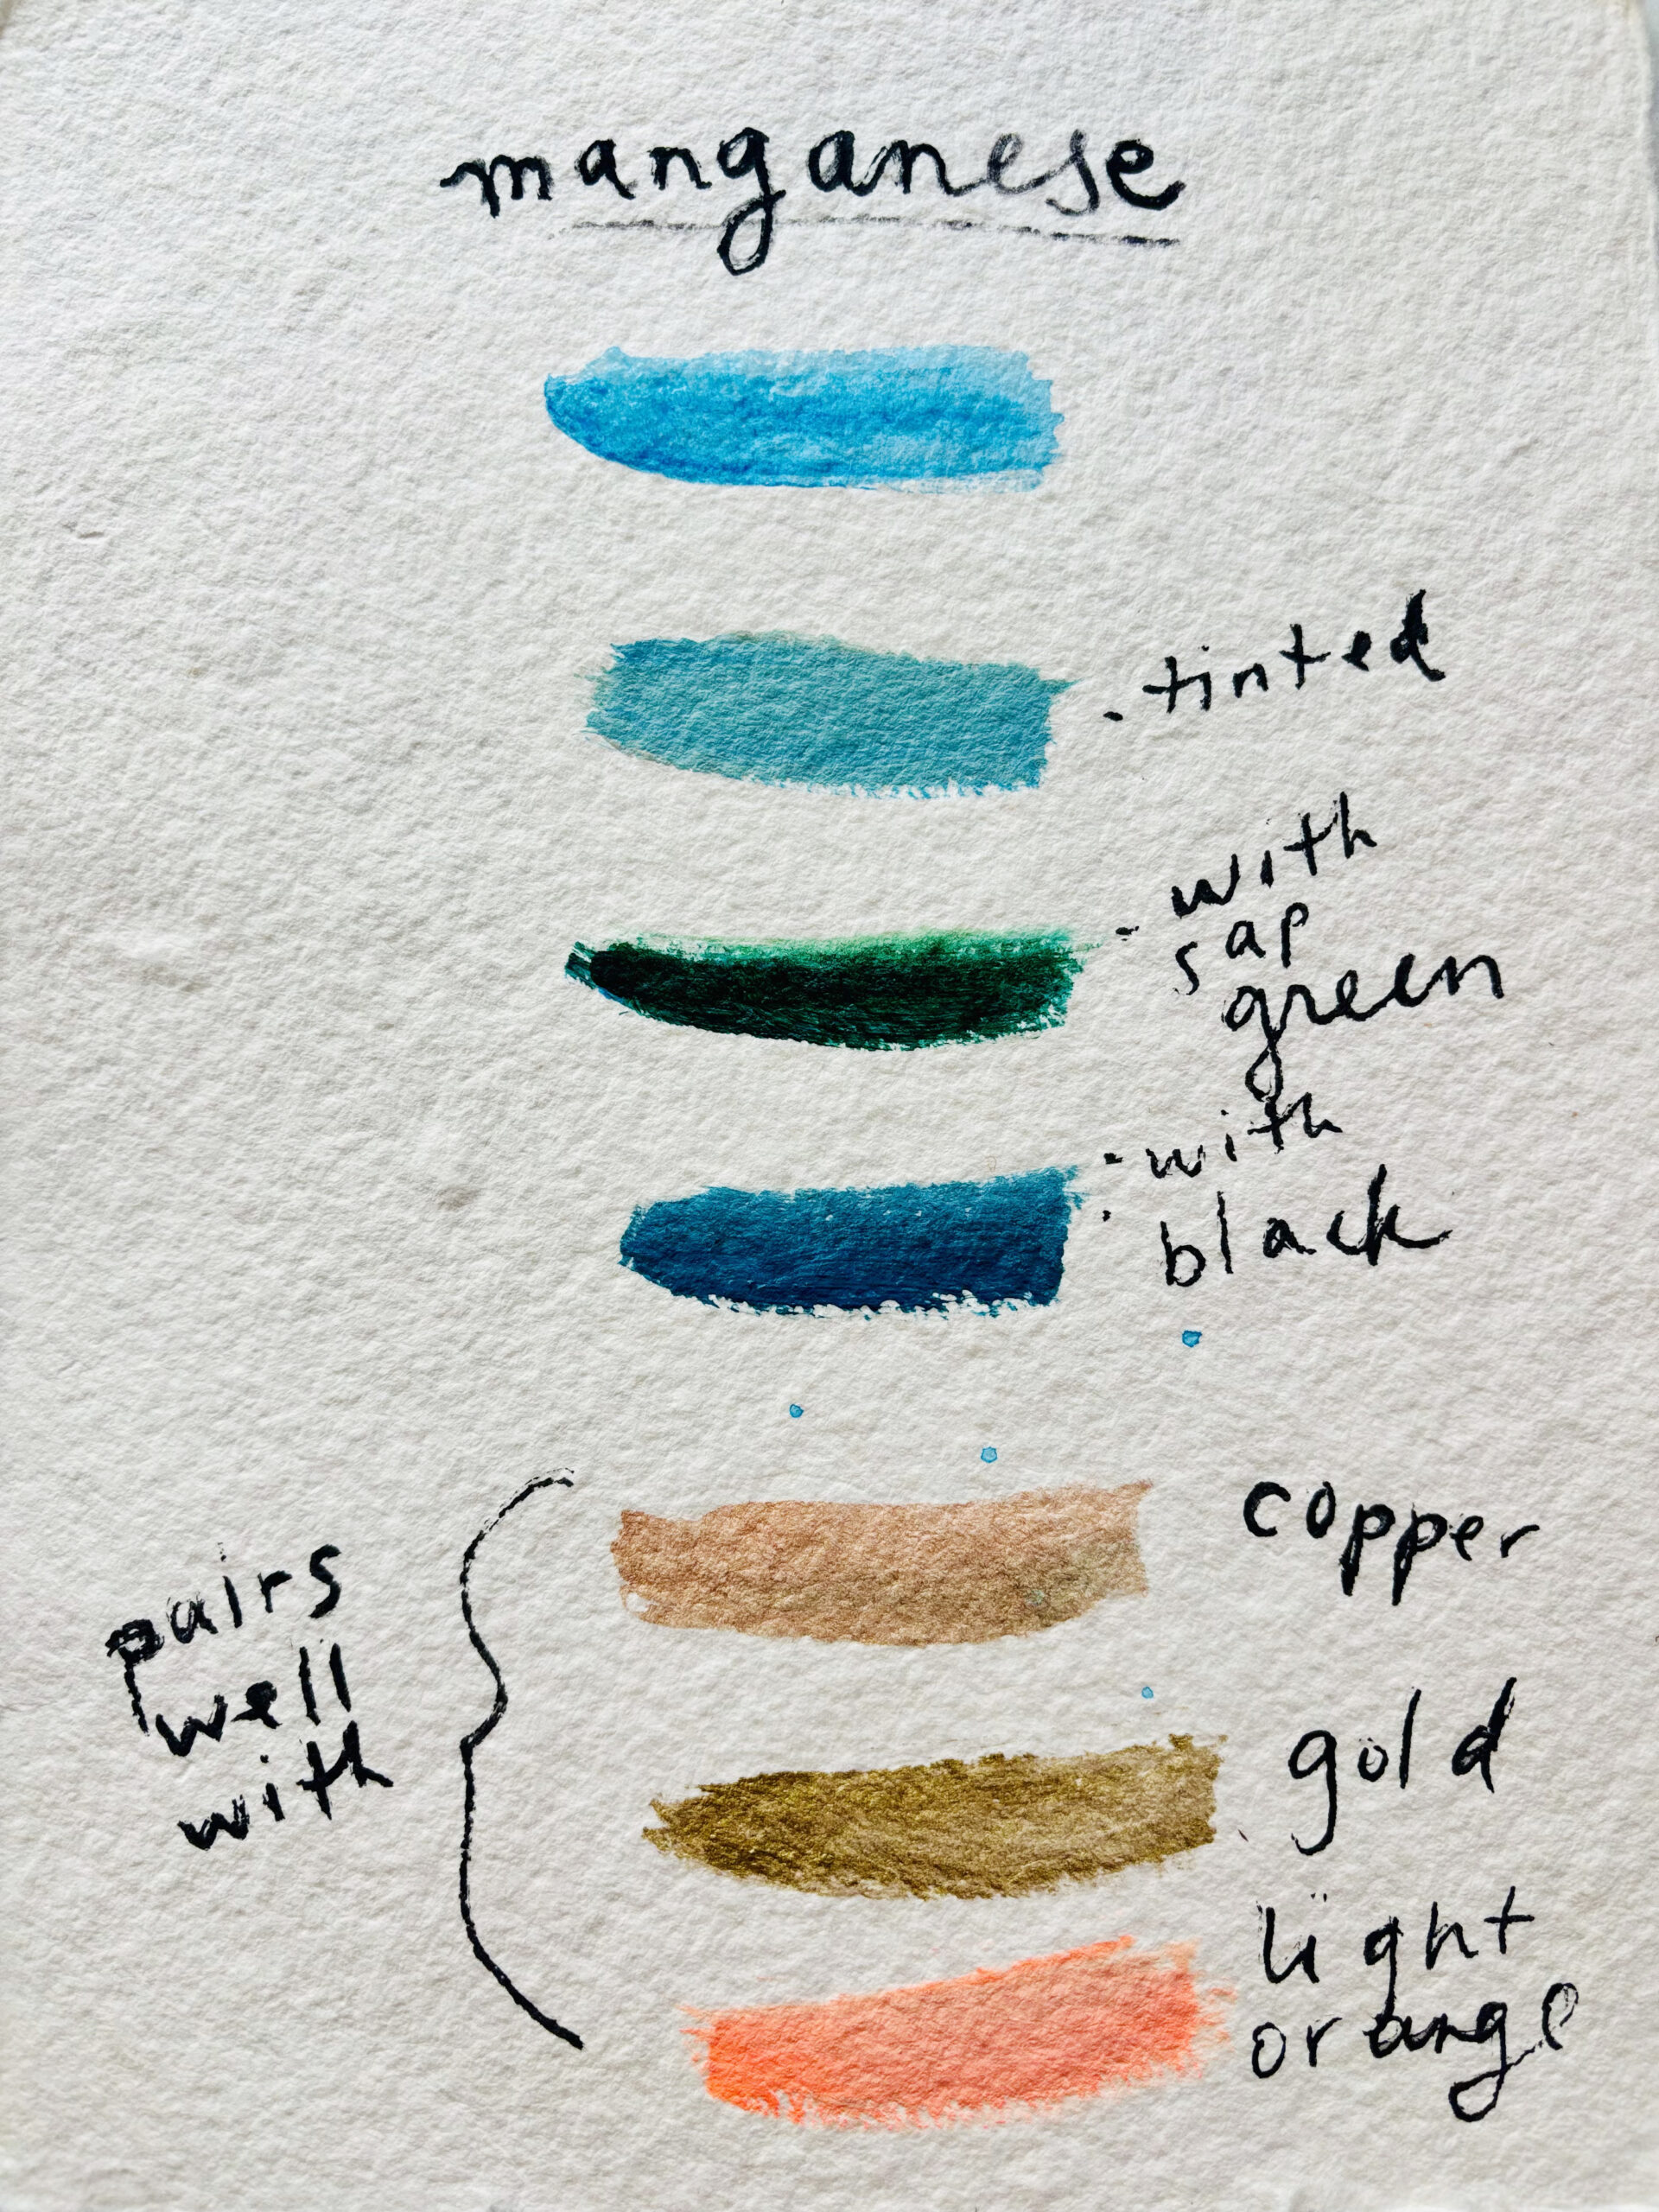 manganese
- tinted
- with
sap
green
- with
black
pairs
well
with
copper
gold
light
orange